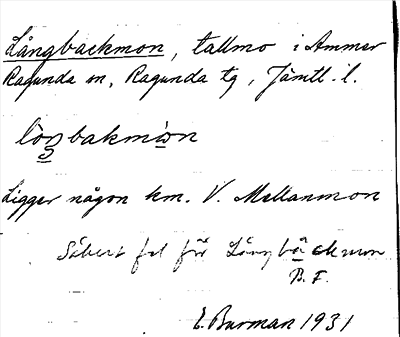 Långbackmon, tallmo i Ammer
Ragunda sn, Ragunda tg, Jämtl. l.
lòŋbakmò̱n
Ligger någon km. V. Mellanmon
Säkert fel för Långbäckmon
B. F.
E. Burman 1931